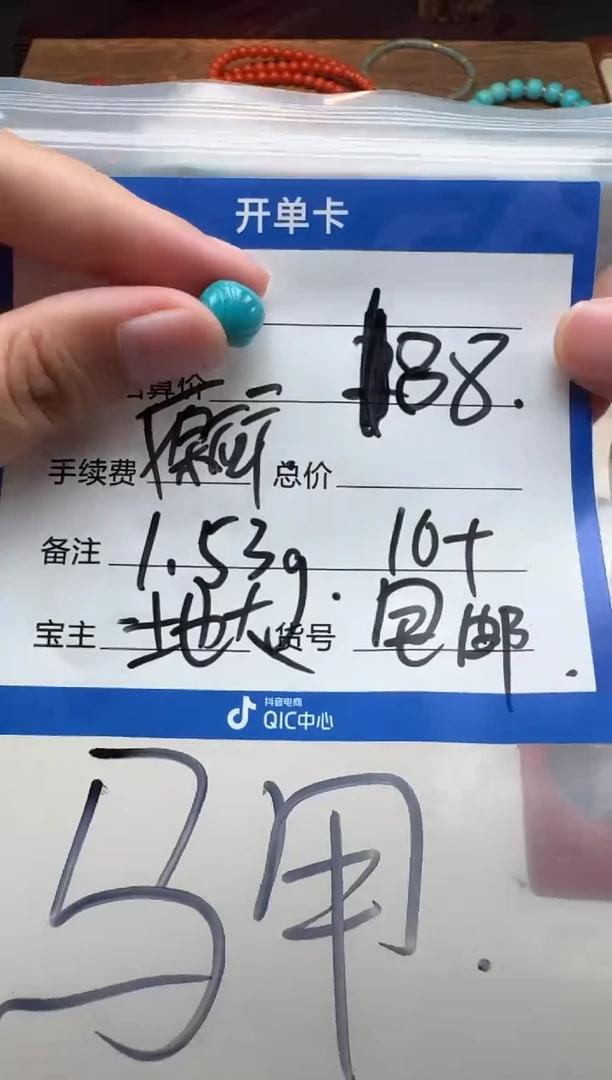 开单卡
88.
算价
手续费 原矿 总价
备注 1.53g. 10+
宝主 地大 货号 包邮.
抖音电商
QIC中心
马甲.